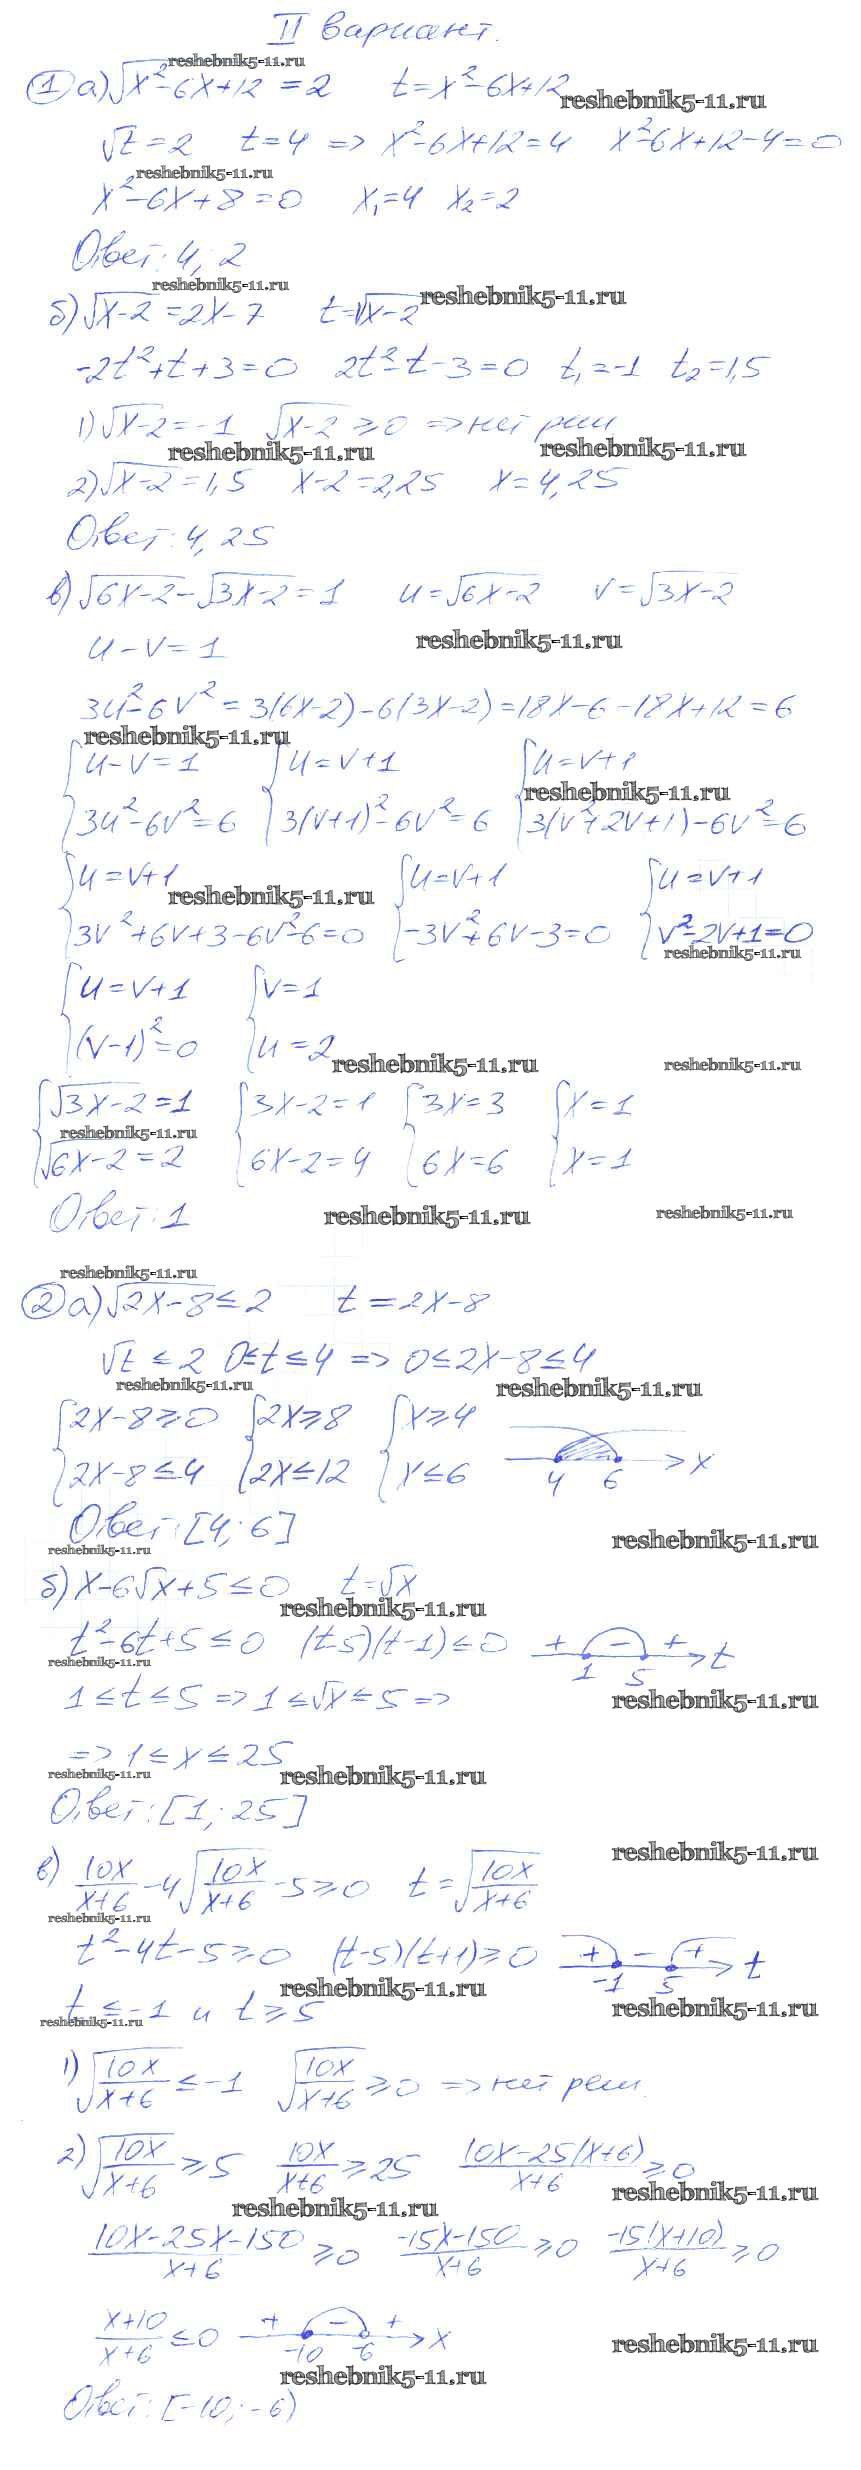 II вариант.
reshebnik5-11.ru
① а) √(x²-6x+12) = 2   t = x²-6x+12
reshebnik5-11.ru
√t = 2   t = 4 => x²-6x+12=4   x²-6x+12-4=0
reshebnik5-11.ru
x²-6x+8=0   x₁=4   x₂=2
Ответ: 4; 2
reshebnik5-11.ru
reshebnik5-11.ru
б) √(x-2) = 2x-7   t=√(x-2)
-2t²+t+3=0   2t²-t-3=0   t₁=-1   t₂=1,5
1) √(x-2) = -1   √(x-2) ≥ 0 => нет реш
reshebnik5-11.ru   reshebnik5-11.ru
2) √(x-2) = 1,5   x-2=2,25   x=4,25
Ответ: 4,25
в) √(6x-2) - √(3x-2) = 1   u=√(6x-2)   v=√(3x-2)
reshebnik5-11.ru
u-v=1
3u²-6v² = 3(6x-2)-6(3x-2)=18x-6-18x+12=6
reshebnik5-11.ru
{u-v=1   {u=v+1   {u=v+1
reshebnik5-11.ru
3u²-6v²=6   3(v+1)²-6v²=6   3(v²+2v+1)-6v²=6
{u=v+1   {u=v+1   {u=v+1
reshebnik5-11.ru
3v²+6v+3-6v²-6=0   -3v²+6v-3=0   v²-2v+1=0
reshebnik5-11.ru
{u=v+1   {v=1
(v-1)²=0   u=2
reshebnik5-11.ru   reshebnik5-11.ru
{√(3x-2)=1   {3x-2=1   {3x=3   {x=1
reshebnik5-11.ru
√(6x-2)=2   6x-2=4   6x=6   x=1
Ответ: 1
reshebnik5-11.ru   reshebnik5-11.ru
reshebnik5-11.ru
② а) √(2x-8) ≤ 2   t = 2x-8
√t ≤ 2   0≤t≤4 => 0≤2x-8≤4
reshebnik5-11.ru   reshebnik5-11.ru
{2x-8≥0   {2x≥8   {x≥4
2x-8≤4   2x≤12   x≤6   4   6   x
Ответ: [4; 6]
reshebnik5-11.ru   reshebnik5-11.ru
б) x-6√x+5≤0   t=√x
reshebnik5-11.ru
t²-6t+5≤0   (t-5)(t-1)≤0   +   -   +   1   5   t
reshebnik5-11.ru
1≤t≤5 => 1≤√x≤5 =>
reshebnik5-11.ru
=> 1≤x≤25
reshebnik5-11.ru   reshebnik5-11.ru
Ответ: [1; 25]
reshebnik5-11.ru
в) 10x/(x+6) - 4√(10x/(x+6)) - 5 ≥ 0   t = √(10x/(x+6))
reshebnik5-11.ru
t²-4t-5≥0   (t-5)(t+1)≥0   +   -   +   -1   5   t
reshebnik5-11.ru
t≤-1 и t≥5
reshebnik5-11.ru   reshebnik5-11.ru
1) √(10x/(x+6)) ≤ -1   √(10x/(x+6)) ≥ 0 => нет реш.
2) √(10x/(x+6)) ≥ 5   10x/(x+6) ≥ 25   (10x-25(x+6))/(x+6) ≥ 0
reshebnik5-11.ru
reshebnik5-11.ru
(10x-25x-150)/(x+6) ≥ 0   (-15x-150)/(x+6) ≥ 0   (-15(x+10))/(x+6) ≥ 0
(x+10)/(x+6) ≤ 0   +   -   +   -10   -6   x
reshebnik5-11.ru
reshebnik5-11.ru
Ответ: [-10; -6)